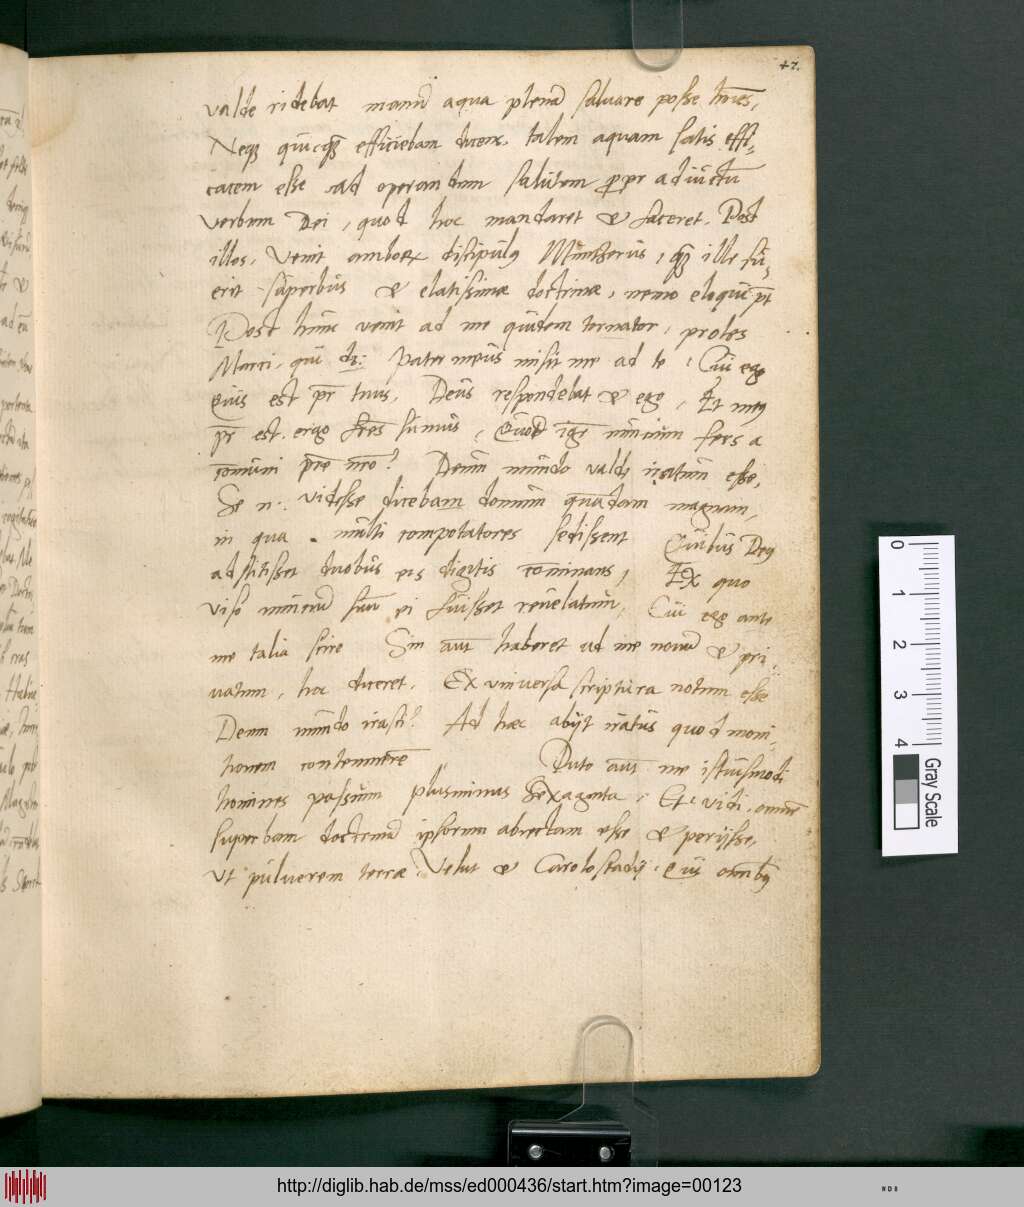 47.
valde ridebat manũ aqua plenã salvare posse hoi͞es,
Neq; quicq̃ efficiebam dicens. talem aquam satis effi,
cacem esse ad operandum salutem ꝓpr adiũctũ
verbum Dei, quod hoc mandaret & faceret. Post
illos. Venit amborx discipulꝯ Muntzerus, q̃ ille fu,
erit superbus & elatissimæ doctrinæ, nemo eloqui p̃t
Post hunc venit ad me quidem tornator, proles
Marci, qui dt: Pater meus misit me ad te, Cui ego
Quis est pr̃ tuus. Deus respondebat & ego, Et meꝯ
pr̃ est. ergo fr̃es sumus, Quod igr̃ nuncium fers a
com̃uni pr̃e nr̃o? Deum mundo valde iratum esse,
Se n: vidisse dicebam domum quãdam magnam,
in qua multi compotatores sedissent Quibus Deꝯ
adstitisset duobus eis digitis com̃inans, Ex quo
viso nunciũ suũ ei fuisset reuelatum, Cui ego ante
me talia scire Sin aut̃ haberet ad me novũ & pri,
uatum, hoc diceret. Ex vniversa scriptura notum esse
Deum mundo irasci? Ad hæc abijt iratus quod moni,
tionem contemnere͂ Puto aut̃ me istiusmodi
homines passum plusminus Sexaginta, Et vidi omne͂
superbam doctrinã ipsorum abiectam esse & perijsse,
vt puluerem terræ Velut & Carolostadij. Quis omnibꝯ
0
1
2
3
4
Gray Scale
http://diglib.hab.de/mss/ed000436/start.htm?image=00123